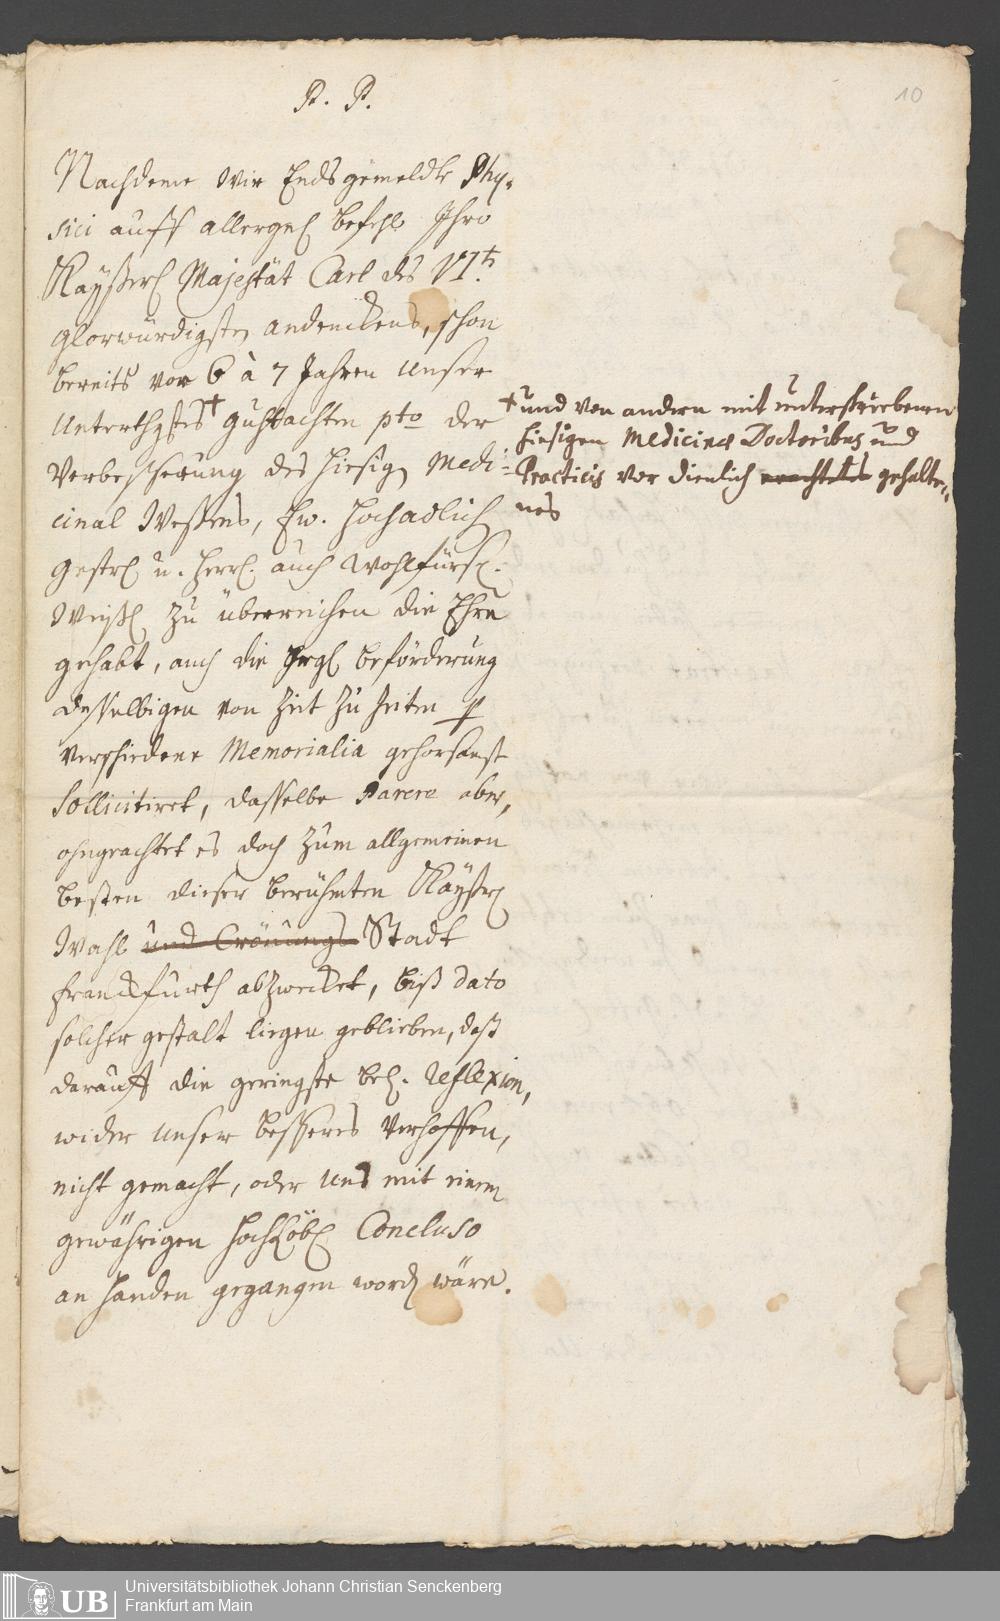 P. P.
10
Nachdeme Wir Endsgemeldte Phy-
sici auff allergn. befehl Ihro
Kayßerl. Majestät Carl des VIt.
glorwürdigsten andenckens, schon
bereits vor 6 à 7 Jahren unser
Unterthgstes + guhtachten pto der
Verbesserung des hiesig. Medi-
cinal Weßens, Ew. Hochadlich
Gestrl. u. Herrl. auch Wohlfürs.
Weißh. zu überreichen die Ehre
gehabt, auch die beförderung
desselbigen von Zeit zu Zeiten p
verschiedene Memorialia gehorsamst
sollicitiret, dasselbe Parere aber,
ohngeachtet es doch zum allgemeinen
besten dieser berühmten Kayßerl.
Wahl und Crönungs Stadt
Franckfurth abzwecket, biß dato
solcher gestalt liegen geblieben, daß
darauff die geringste bel. reflexion,
wider unser besseres Verhoffen,
nicht gemacht, oder uns mit einem
gewährigen Hochlöbl. Concluso
an Handen gegangen word. wäre.
+ und von andern mit unterschriebenen
hiesigen Medicinae Doctoribus und
Practicis vor dienlich erachtetes gehalte-
nes
UB Universitätsbibliothek Johann Christian Senckenberg
Frankfurt am Main